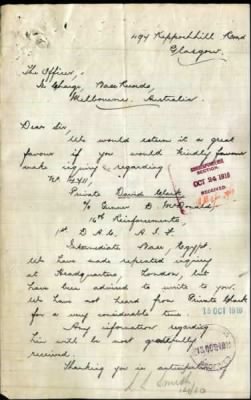 494 Keppochhill Road
Glasgow.
The Officer,
In Charge, Base Records,
Melbourne, Australia.
Dear Sir,
We would esteem it a great
favour if you would kindly favour
make inquiry regarding
Private David Clark
c/o Gunner D McDonald,
16th Reinforcements,
1st D.A.C. A.I.F.
Intermediate Base, Egypt.
We have made repeated inquiry
at Headquarters, London, but
have been advised to write to you.
We have not heard from Private Clark
for a very considerable time.
Any information regarding
him will be most gratefully
received.
Thanking you in anticipation
SECTION
OCT 24 1916
RECEIVED